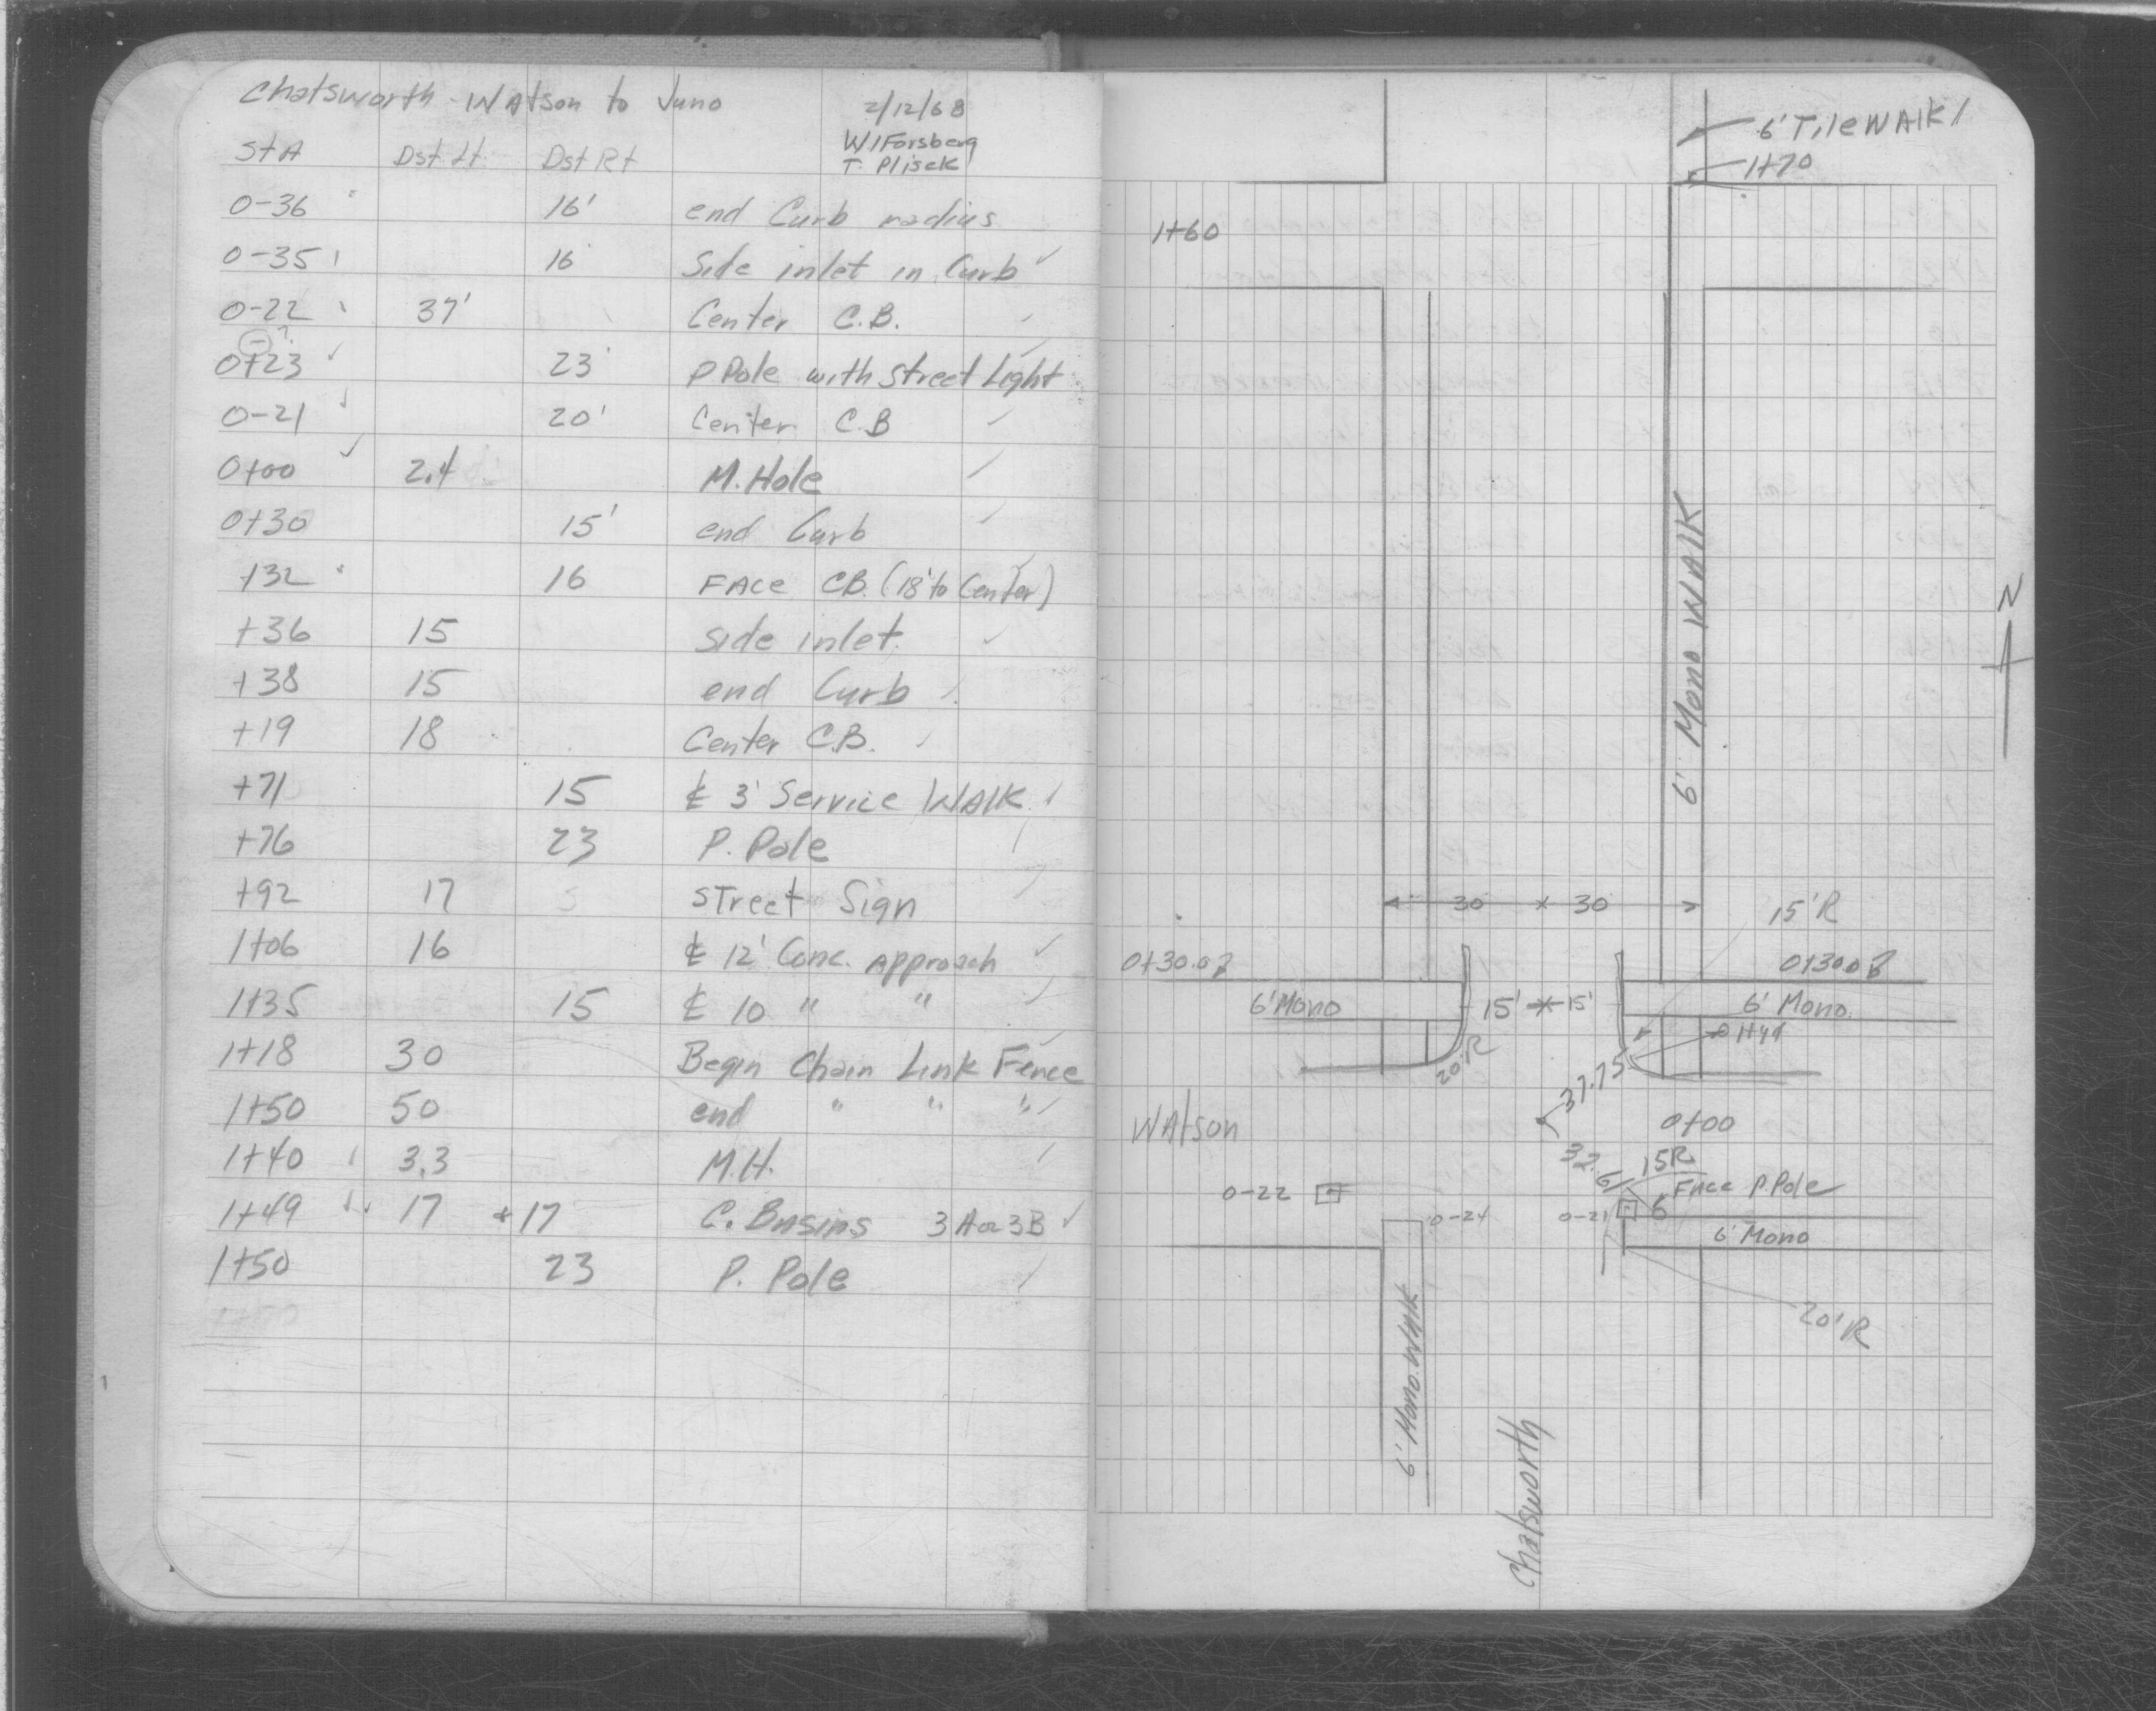 Chatsworth - Watson to Juno
2/12/68
W/Forsberg
T. Plisek
StA Dst Lt Dst Rt
0-36 16' end Curb radius
0-35 16 Side inlet in Curb ✓
0-22 37' Center C.B.
(-)?
0+23 ✓ 23' P Pole with Street Light
0-21 20' Center C.B ✓
0+00 ✓ 2.4 M. Hole ✓
0+30 15' end Curb ✓
+32 16 FACE CB. (18' to Center) ✓
+36 15 side inlet ✓
+38 15 end Curb ✓
+19 18 Center C.B. ✓
+71 15 ℄ 3' Service WAlK ✓
+76 23 P. Pole
+92 17 Street Sign ✓
1+06 16 ℄ 12' Conc. Approach ✓
1+35 15 ℄ 10 " " ✓
1+18 30 Begin Chain Link Fence ✓
1+50 50 end " " " ✓
1+40 3.3 M.H. ✓
1+49 17 +17 C. Basins 3A or 3B ✓
1+50 23 P. Pole ✓
6' Tile WAlK
1+70
1+60
6' Mono WAlK
N
30 x 30
15'R
0+30.0
0+30.0
6' Mono
15' x 15'
6' Mono
20'R
37.75
WAtson
0+00
32.6
15R
Face P. Pole
0-22
0-24
0-21
6
6' Mono
20'R
6' Mono. Walk
Chatsworth